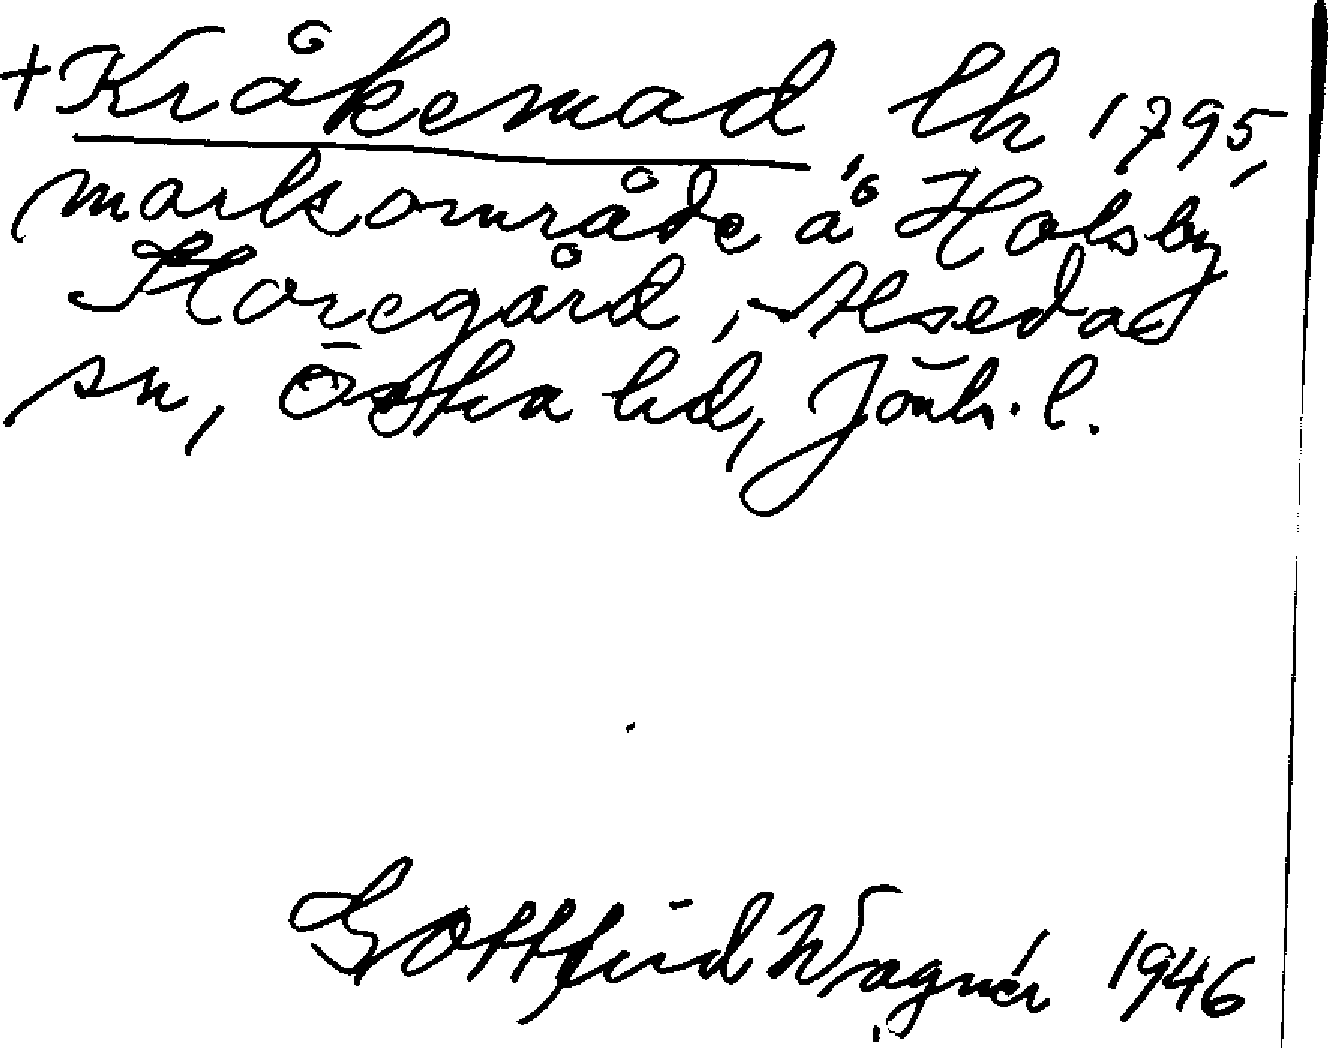 + Kråkemad, lh 1795,
marksområde å Holsby
Storegård, Alseda
sn, Östra hd, Jönk. l.
Gottfrid Wagnér 1946